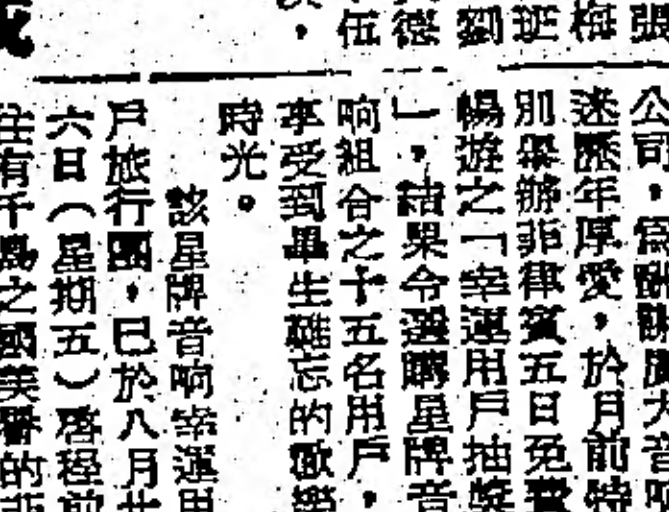 張
梅
班
劉
德
伍
，
公司，為酬謝廣大音响
迷歷年厚愛，於月前特
別舉辦菲律賓五日免費
暢遊之「幸運用戶抽獎
」，結果令選購星牌音
响組合之十五名用戶，
享受到畢生難忘的歡樂
時光。
該星牌音响幸運用
戶旅行團，已於八月廿
六日（星期五）啓程前
往有千島之國美譽的菲